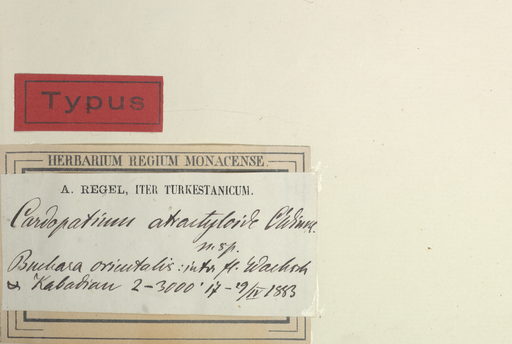 Typus
HERBARIUM REGIUM MONACENSE.
A. REGEL, ITER TURKESTANICUM.
Cardopatium atractyloide C. Winkl.
n. sp.
Buchara orientalis: inter fl. Wachsch
& Kabadian 2-3000' 17-19/IV 1883